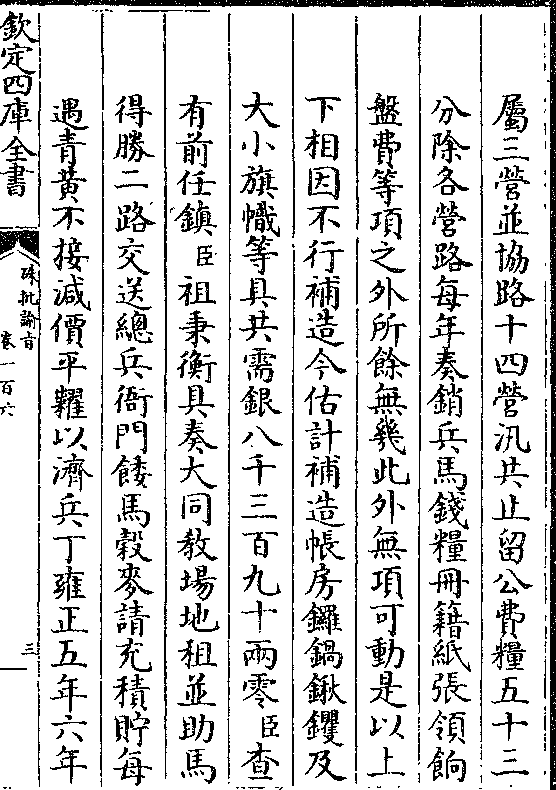 屬三營並協路十四營汛共止留公費糧五十三
分除各營路每年奏銷兵馬錢糧冊籍紙張領餉
盤費等項之外所餘無幾此外無項可動是以上
下相因不行補造今估計補造帳房鑼鍋鍬钁及
大小旗幟等具共需銀八千三百九十兩零臣查
有前任鎮臣祖秉衡具奏大同教場地租並助馬
得勝二路交送總兵衙門餧馬穀麥請充積貯每
遇青黃不接減價平糶以濟兵丁雍正五年六年
欽定四庫全書
硃批諭旨
卷一百六
三